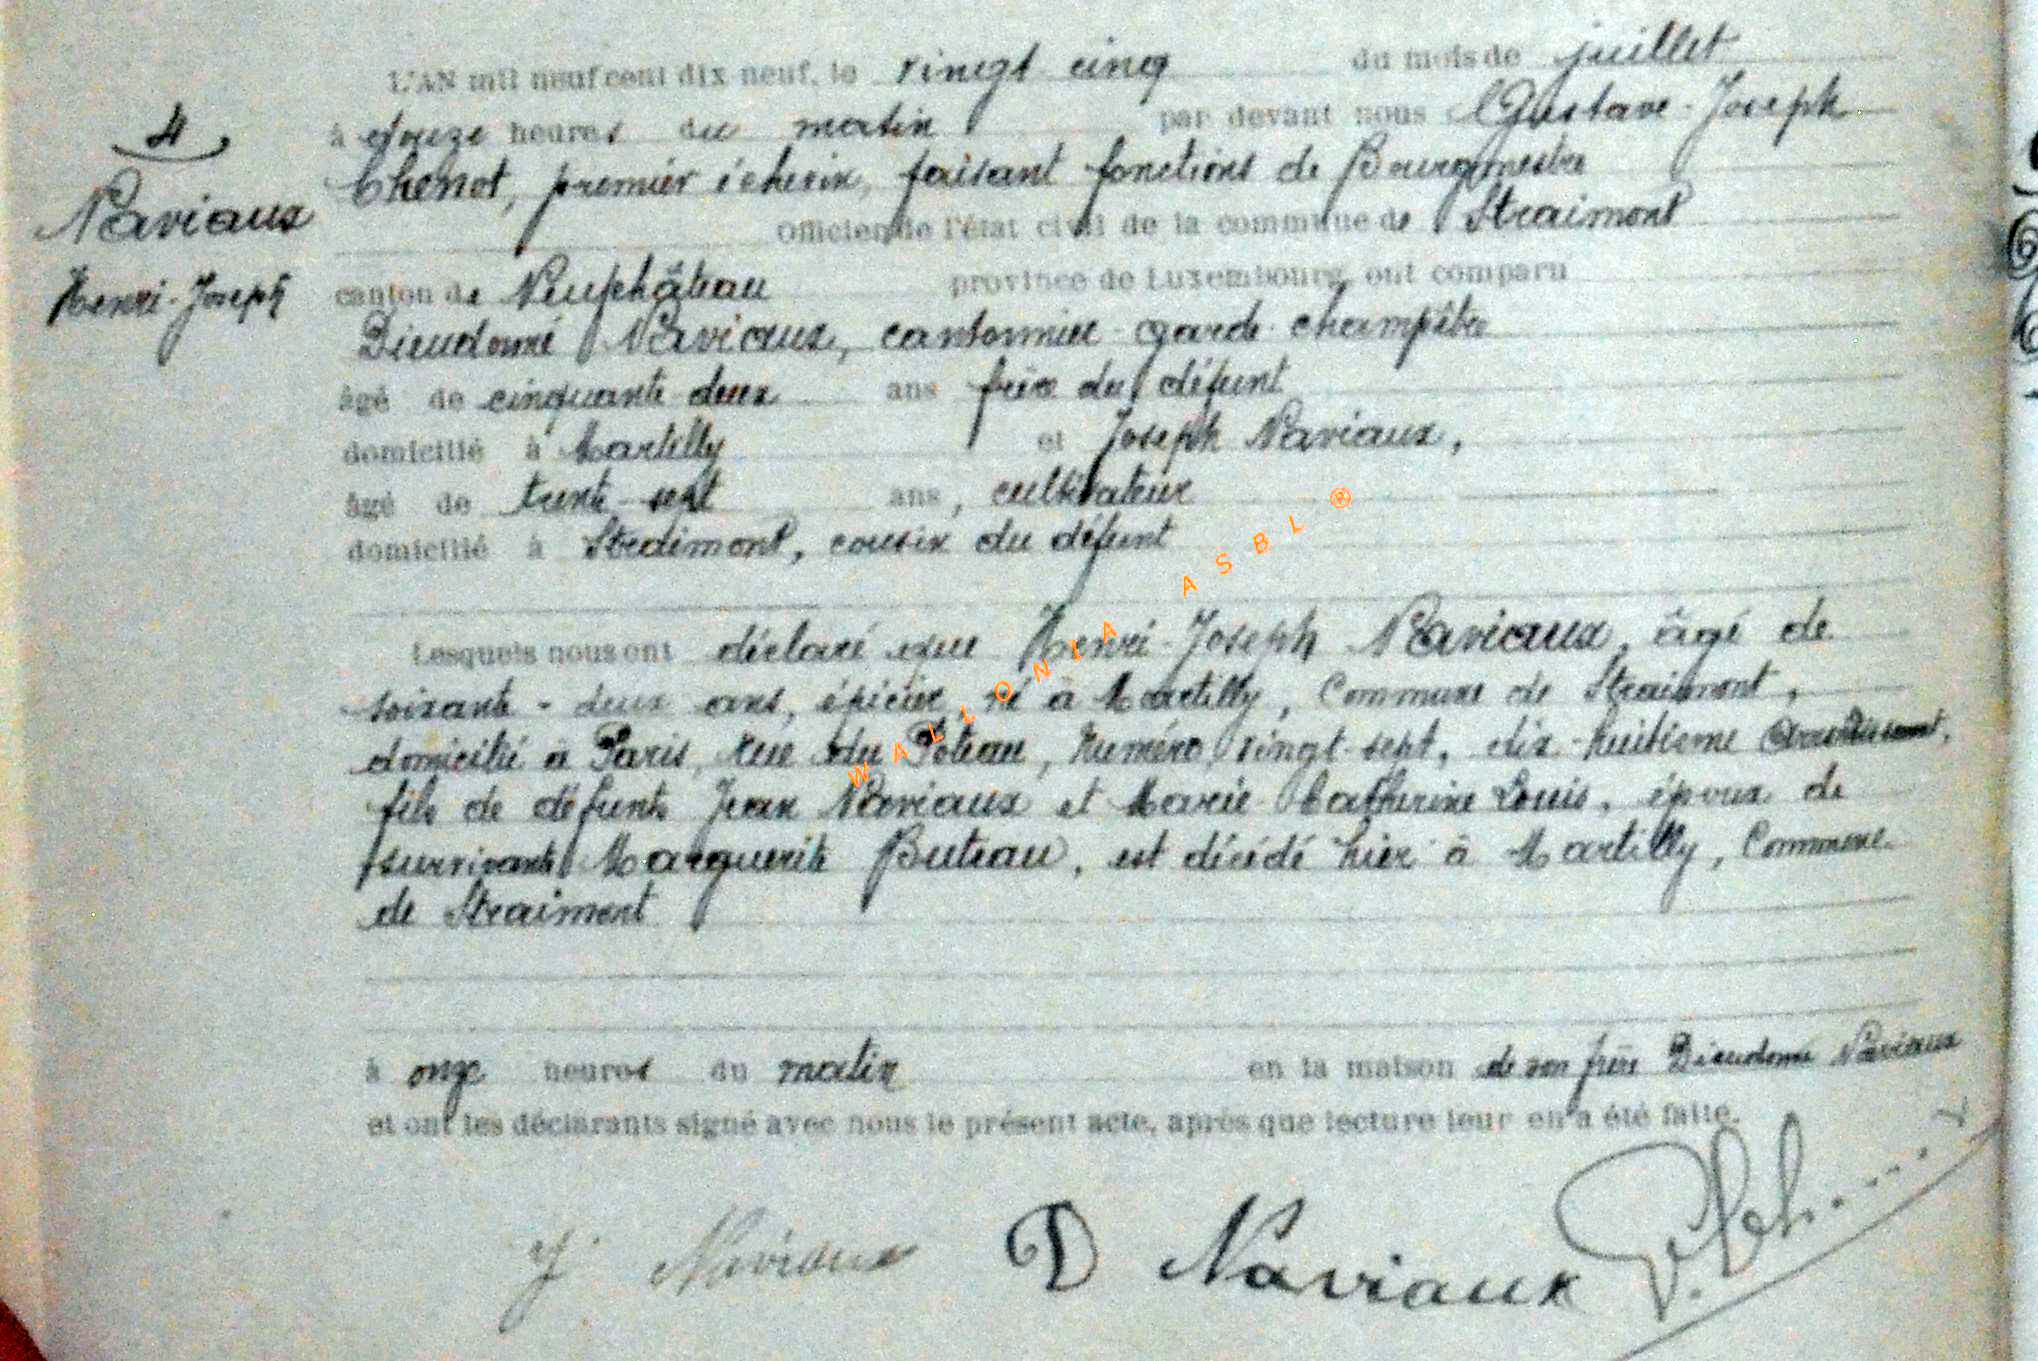 L'AN mil neuf cent dix neuf, le vingt cinq du mois de juillet
à douze heures du matin par devant nous Gustave-Joseph
Chenot, premier échevin, faisant fonctions de Bourgmestre
Officier de l'état civil de la commune de Straimont
canton de Neufchâteau province de Luxembourg, ont comparu
Dieudonné Naviaux, cantonnier garde-champêtre
âgé de cinquante deux ans frère du défunt
domicilié à Martilly et Joseph Naviaux,
âgé de trente-sept ans, cultivateur
domicilié à Straimont, cousin du défunt
4
Naviaux
Henri-Joseph
Lesquels nous ont déclaré que Henri-Joseph Naviaux, âgé de
soixante-deux ans, épicier, né à Martilly, Commune de Straimont,
domicilié à Paris, rue du Poteau, numéro vingt-sept, dix-huitième arrondissement,
fils de défunts Jean Naviaux et Marie-Catherine Louis, époux de
survivante Marguerite Buteau, est décédé hier à Martilly, Commune
de Straimont
à onze heures du matin en la maison de son frère Dieudonné Naviaux
et ont les déclarants signé avec nous le présent acte, après que lecture leur en a été faite.
J Naviaux D Naviaux
WALLONIA ASBL ®